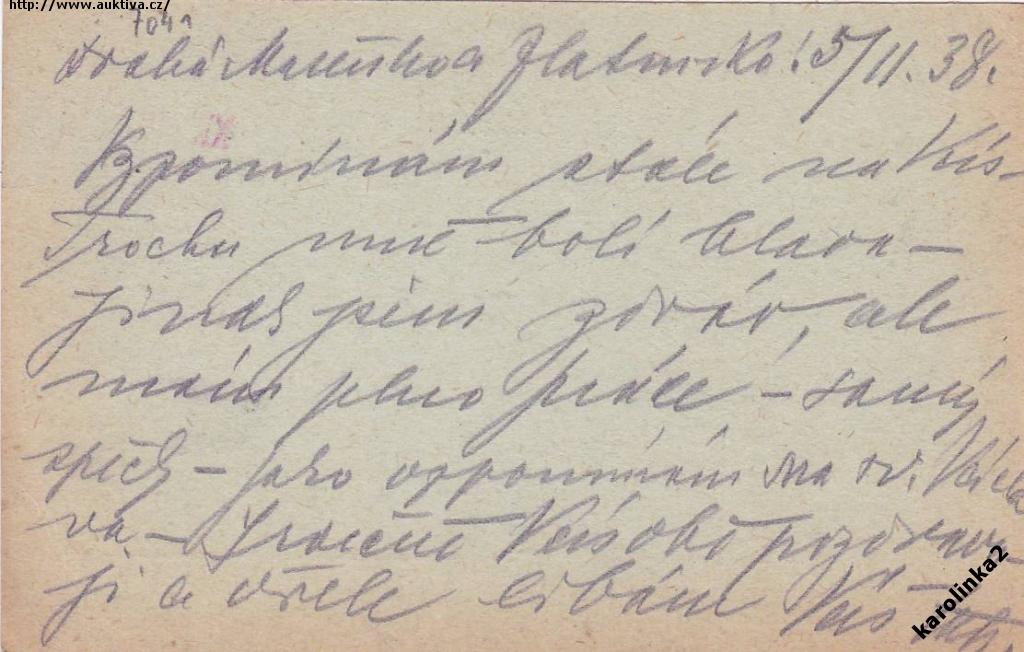 http://www.auktiva.cz/
7041
Drahá Mařenko a Zlatuško! 5/11. 38.
Vzpomínám stále na Vás –
Trochu mně bolí hlava –
jinak jsem zdráv, ale
mám plno práce – samý
spěch – jako vzpomínám na sv. Václa
va. – Srdečně Vás obě pozdravu
ji a vřele líbám Váš
karolinka2